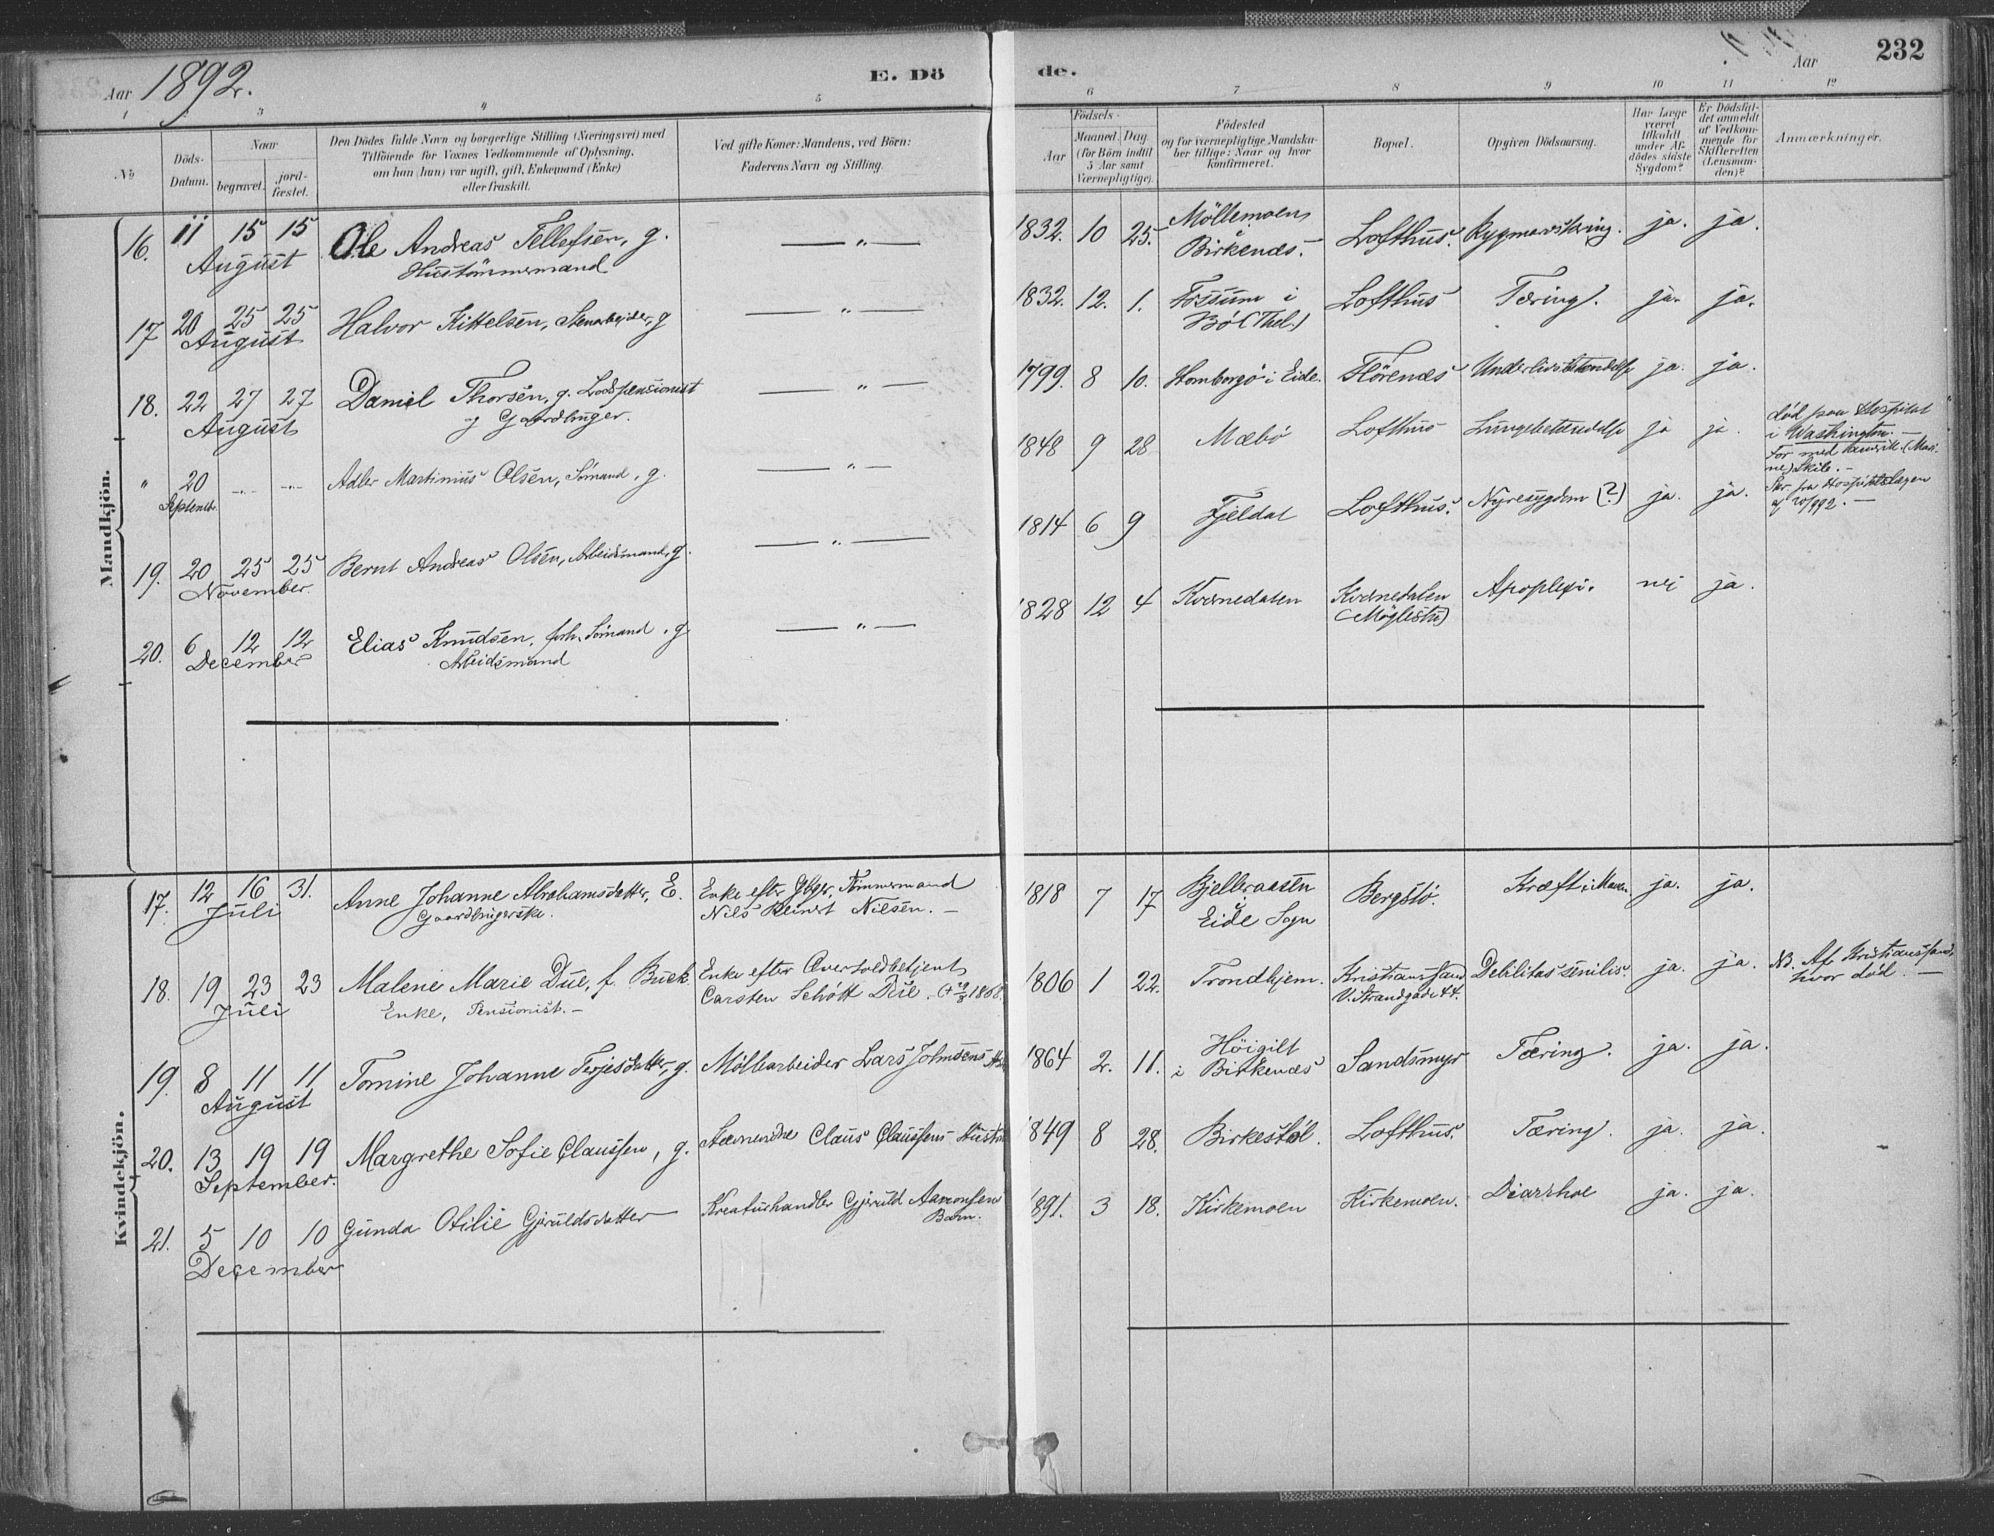 Aar 1892. E. Dö de. Aar 232
1 2 3 4 5 6 7 8 9 10 11 12
No
Döds-Datum.
Naar begravet. jordfæstet.
Den Dödes fulde Navn og borgerlige Stilling (Næringsvei) med Tilföiende for Voxnes Vedkommende af Oplysning, om han (hun) var ugift, gift, Enkemand (Enke) eller fraskilt.
Ved gifte Koner: Mandens, ved Börn: Faderens Navn og Stilling.
Födsels- Aar Maaned Dag (for Börn indtil 5 Aar samt Værnepligtige).
Födested og for værnepligtige Mandskaber tillige: Naar og hvor konfirmeret.
Bopæl.
Opgiven Dödsaarsag.
Har Læge været tilkaldt under Afdödes sidste Sygdom?
Er Dödsfaldet anmeldt af Vedkommende for Skifteretten (Lensmanden)?
Anmærkninger.
Mandkjön.
16. 11 15 15 August Ole Andreas Tellefsen, g. Hustömmermand — „ — 1832. 10 25. Möllemoen, Birkenæs. Lofthus. Rygmarvstæring. ja. ja.
17 20 25 25 August Halvor Kittelsen, Stenarbeider, g — „ — 1832. 12. 1. Fossum i Bö (Thel.) Lofthus Tæring. ja. ja.
18. 22 27 27 August Daniel Thorsen, g. Lodspensionist og Gaardbruger. — „ — 1799. 8 10. Homborgö i Eide. Flörenæs Underlivsbetændelse ja. ja.
„ 20 Septembr. -„- -„- Adler Martinius Olsen, Sömand, g. — „ — 1848 9 28 Mæbö Lofthus Lungebetændelse ja ja. død paa Hospital i Washington. — For med amerik. (Marine) Skib. — Skr. fra Hospitalslægen af 20/9 92. —
19. 20 25 25 November. Bernt Andreas Olsen, Arbeidsmand, g. — „ — 1814 6 9 Fjeldal Lofthus. Nyresygdom (?) ja. ja.
20. 6 12 12 December Elias Knudsen, forh. Sömand, g Arbeidsmand — „ — 1828 12 4 Kvernedalen Kvernedalen (Möglestu) Apoplexi. nei ja.
Kvindekjön.
17. 12 16 31. Juli Anne Johanne Abrahamsdatter, E. Gaardbrugerske. Enke efter Gbgr, Tömmermand Nils Reinert Nilsen. — 1818 7 17 Bjelleraasen Eide Sogn Bergstö. Kræft i Maven. ja. ja.
18. 19 23 23 Juli Malene Marie Due, f. Buck Enke, Pensionist. — Enke efter Overtoldbetjent Carsten Schött Due. 1806 1 22. Trondhjem. Kristianssand V. Strandgade 44. Debilitas senilis. ja. ja. NB. Af Kristianssand, hvor död. —
19. 8 11 11 August Tomine Johanne Terjesdatter, g. Möllearbeider Lars Johnsens 1864 2. 11. Höigilt i Birkenæs Sandsmyr Tæring. ja. ja.
20. 13 19 19 September. Margrethe Sofie Claussen, g. Claus Claussens Hustru 1849 8 28. Birkestöl. Lofthus. Tæring. ja. ja.
21. 5 10 10 December Gunda Otilie Gjeruldsdatter Kreaturhandler Gjeruld Aanonsens Barn. 1891. 3 18. Kirkemoen Kirkemoen. Diarrhoe ja. ja.